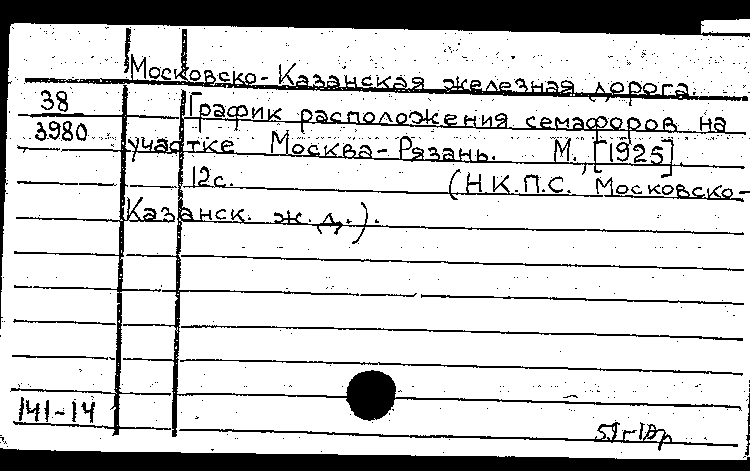 Московско-Казанская железная дорога.
38
График расположения семафоров на
3980
участке Москва-Рязань. М., [1925].
12с. (Н.К.П.С. Московско-
Казанск. ж.д.).
141-14